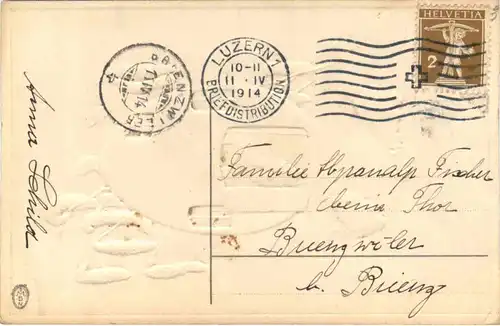 HELVETIA
2
LUZERN 1
10-11
11·IV
1914
BRIEFDISTRIBUTION
BRIENZWILER
11.IV.14
Anna Schild
Familie Abplanalp Fischer
beim Thor
Brienzwiler
b. Brienz